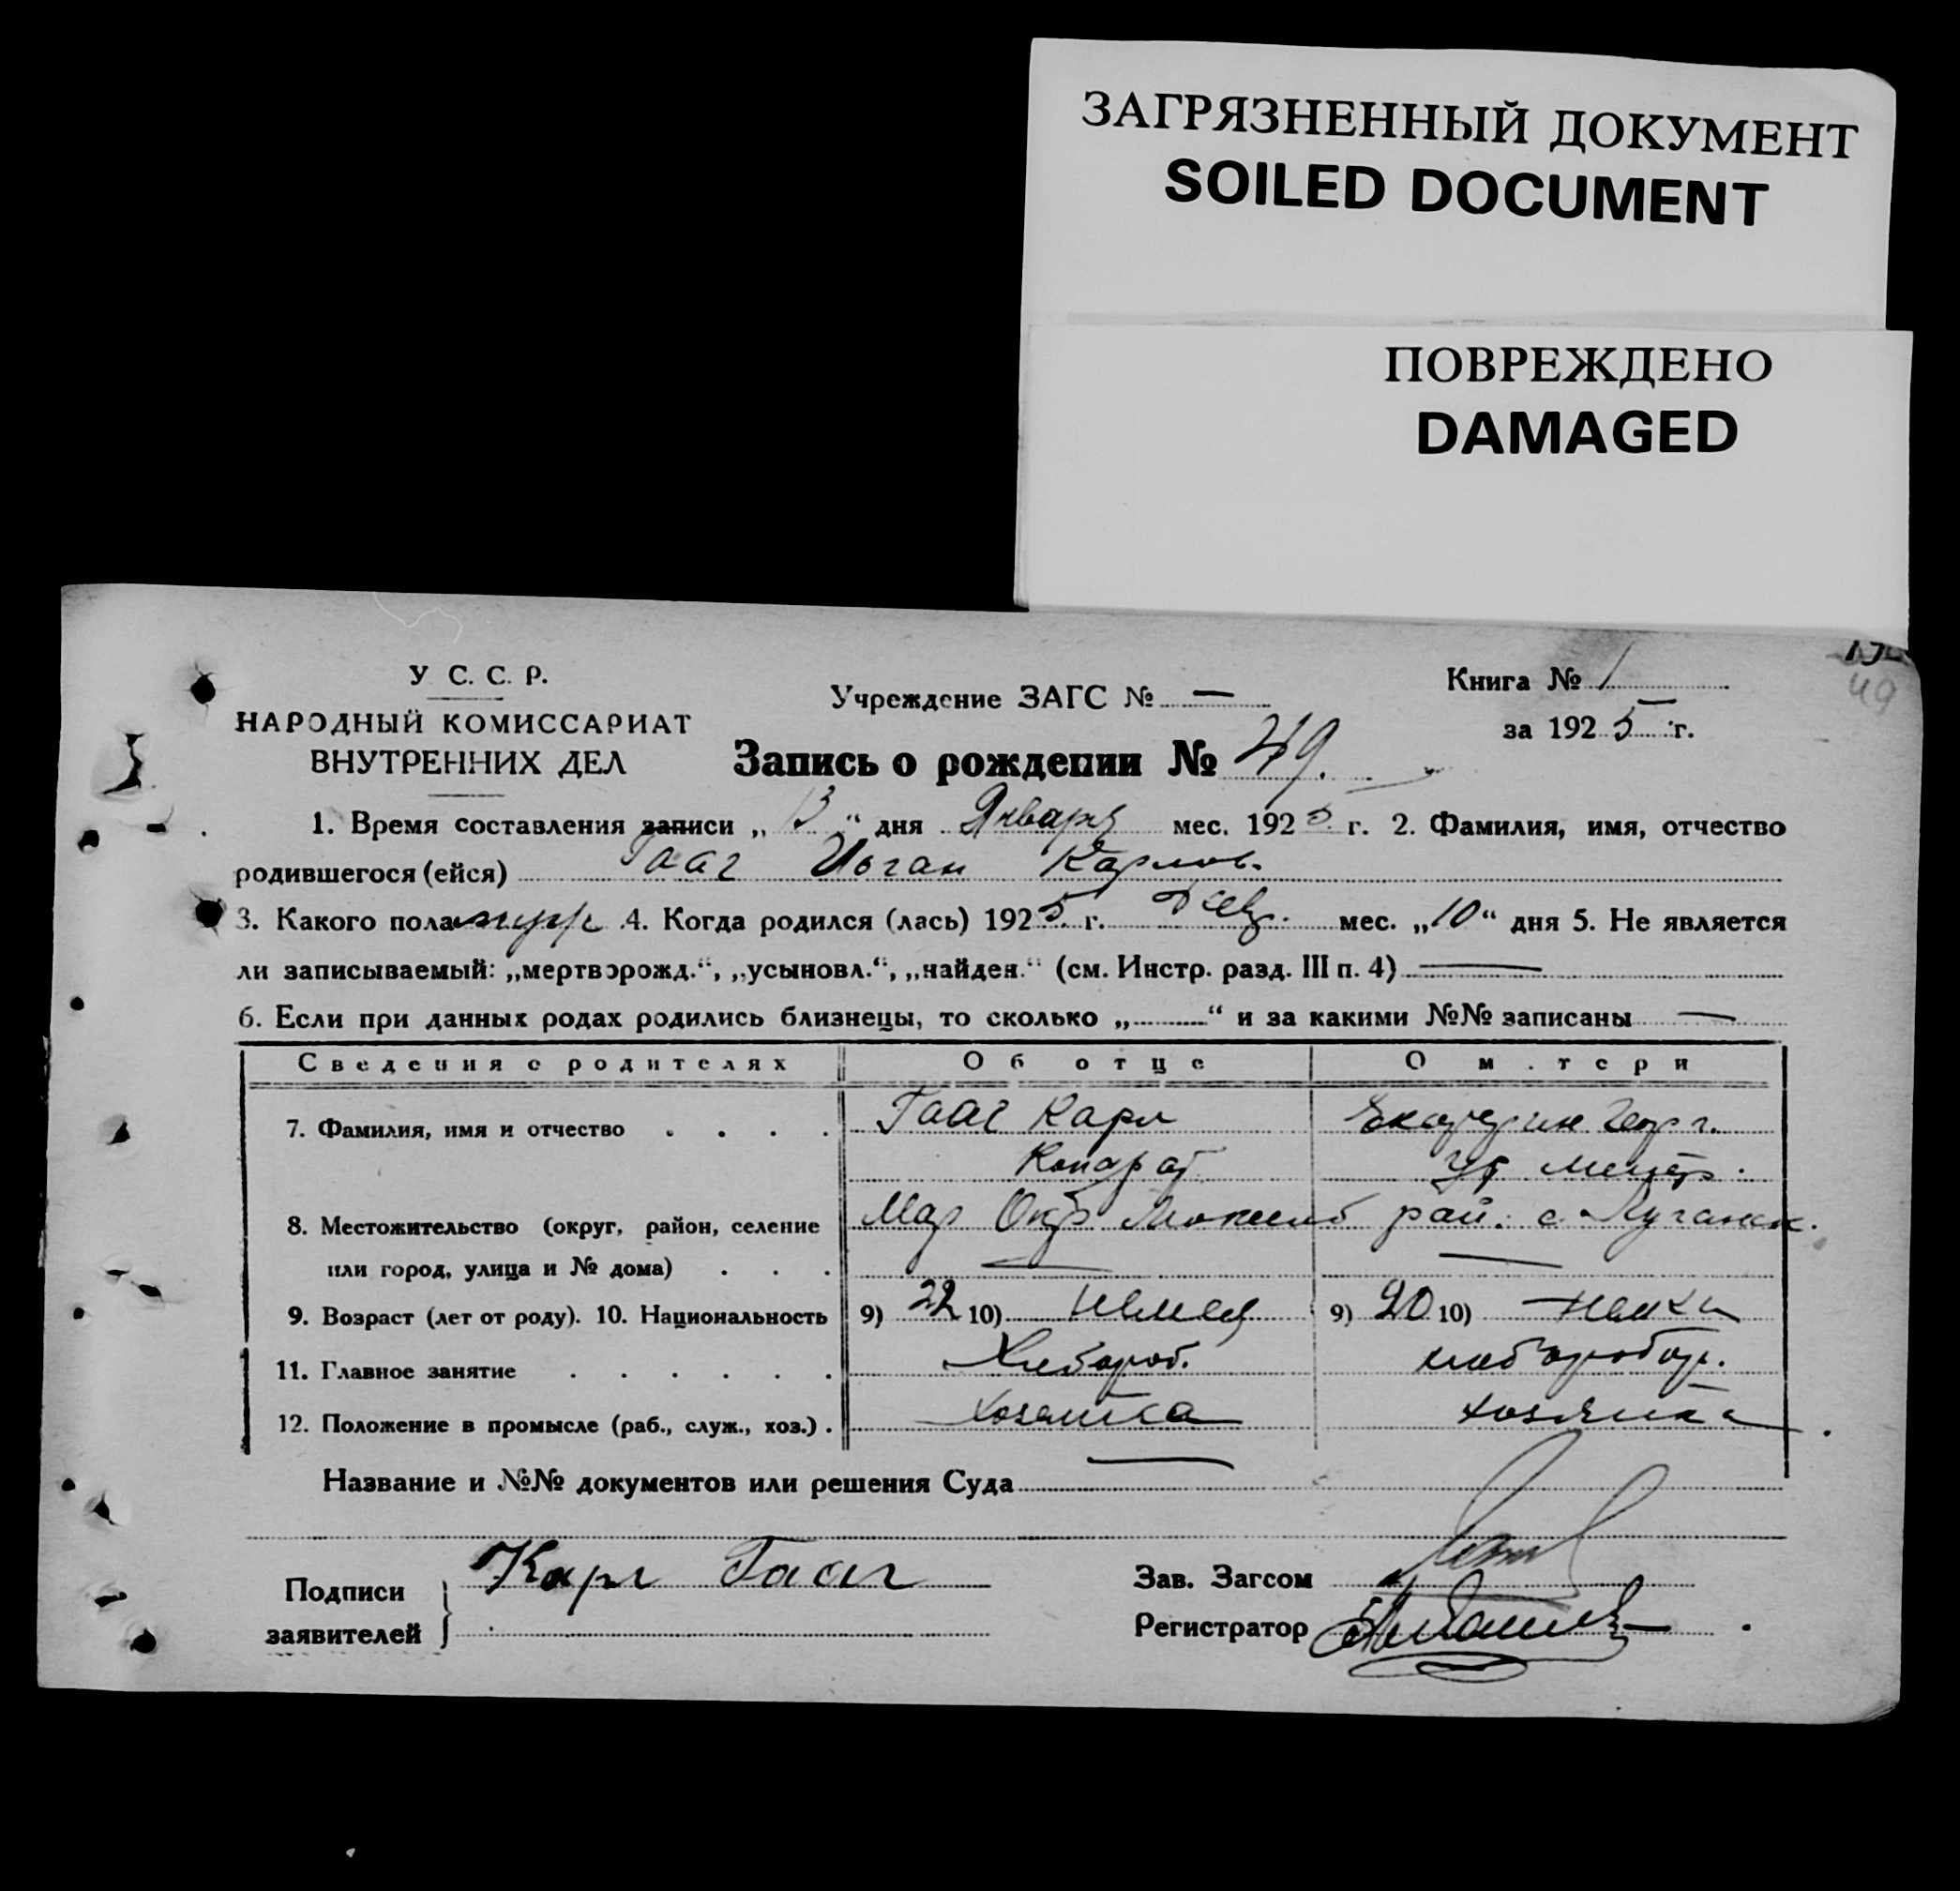 ЗАГРЯЗНЕННЫЙ ДОКУМЕНТ
SOILED DOCUMENT
ПОВРЕЖДЕНО
DAMAGED
49
У С. С. Р.
НАРОДНЫЙ КОМИССАРИАТ
ВНУТРЕННИХ ДЕЛ
Учреждение ЗАГС № —
Книга № 1
за 1925 г.
Запись о рождении № 49.
1. Время составления записи „13“ дня Января мес. 1925 г. 2. Фамилия, имя, отчество
родившегося (ейся) Гааг Иоган Карлов.
3. Какого пола муж 4. Когда родился (лась) 1925 г. мес. „10“ дня 5. Не является
ли записываемый: „мертворожд.“, „усыновл.“, „найден.“ (см. Инстр. разд. III п. 4) —
6. Если при данных родах родились близнецы, то сколько „ “ и за какими №№ записаны —
Сведения о родителях Об отце О м.тери
7. Фамилия, имя и отчество . . . . Гааг Карл Екатерин Георг.
Конрат
8. Местожительство (округ, район, селение Мар Окр рай. с. Луганск.
или город, улица и № дома) . . . — —
9. Возраст (лет от роду). 10. Национальность 9) 22 10) немец 9) 20 10) немка
11. Главное занятие . . . . . . Хлебороб. хлебороб
12. Положение в промысле (раб., служ., хоз.) . хозяйка хозяйка
Название и №№ документов или решения Суда —
Подписи Карл Гааг
заявителей
Зав. Загсом
Регистратор